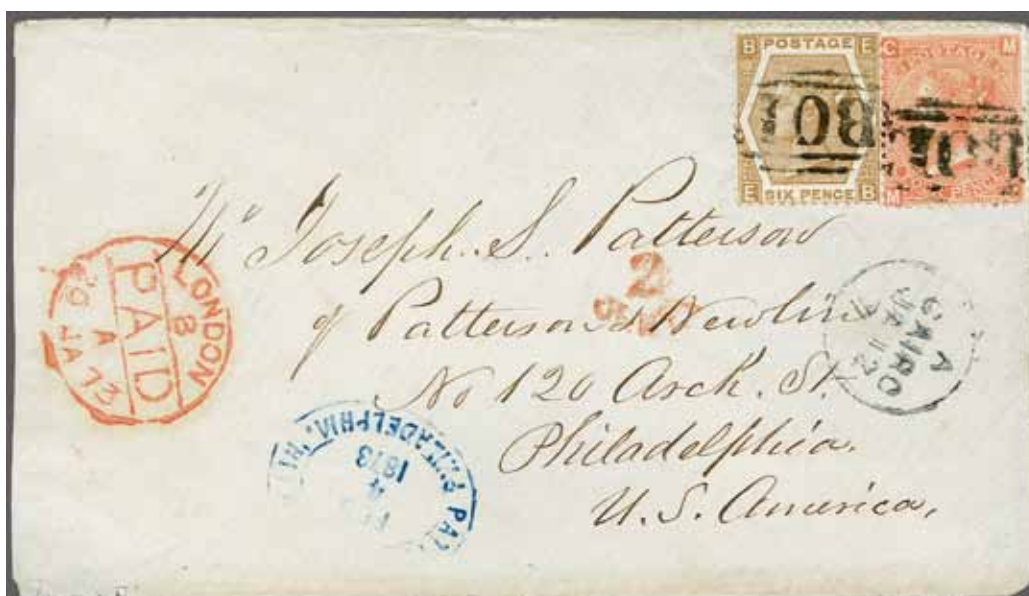 B POSTAGE E
E SIX PENCE B
C POSTAGE M
M PENCE
B01
Mr Joseph. S. Patterson
of Patterson & Newlin
No 120 Arch. St.
Philadelphia.
U. S. America,
LONDON
8
A
PAID
JA
2
CENTS
A
CAIRO
JA 11
PHILADELPHIA
1873
PAID